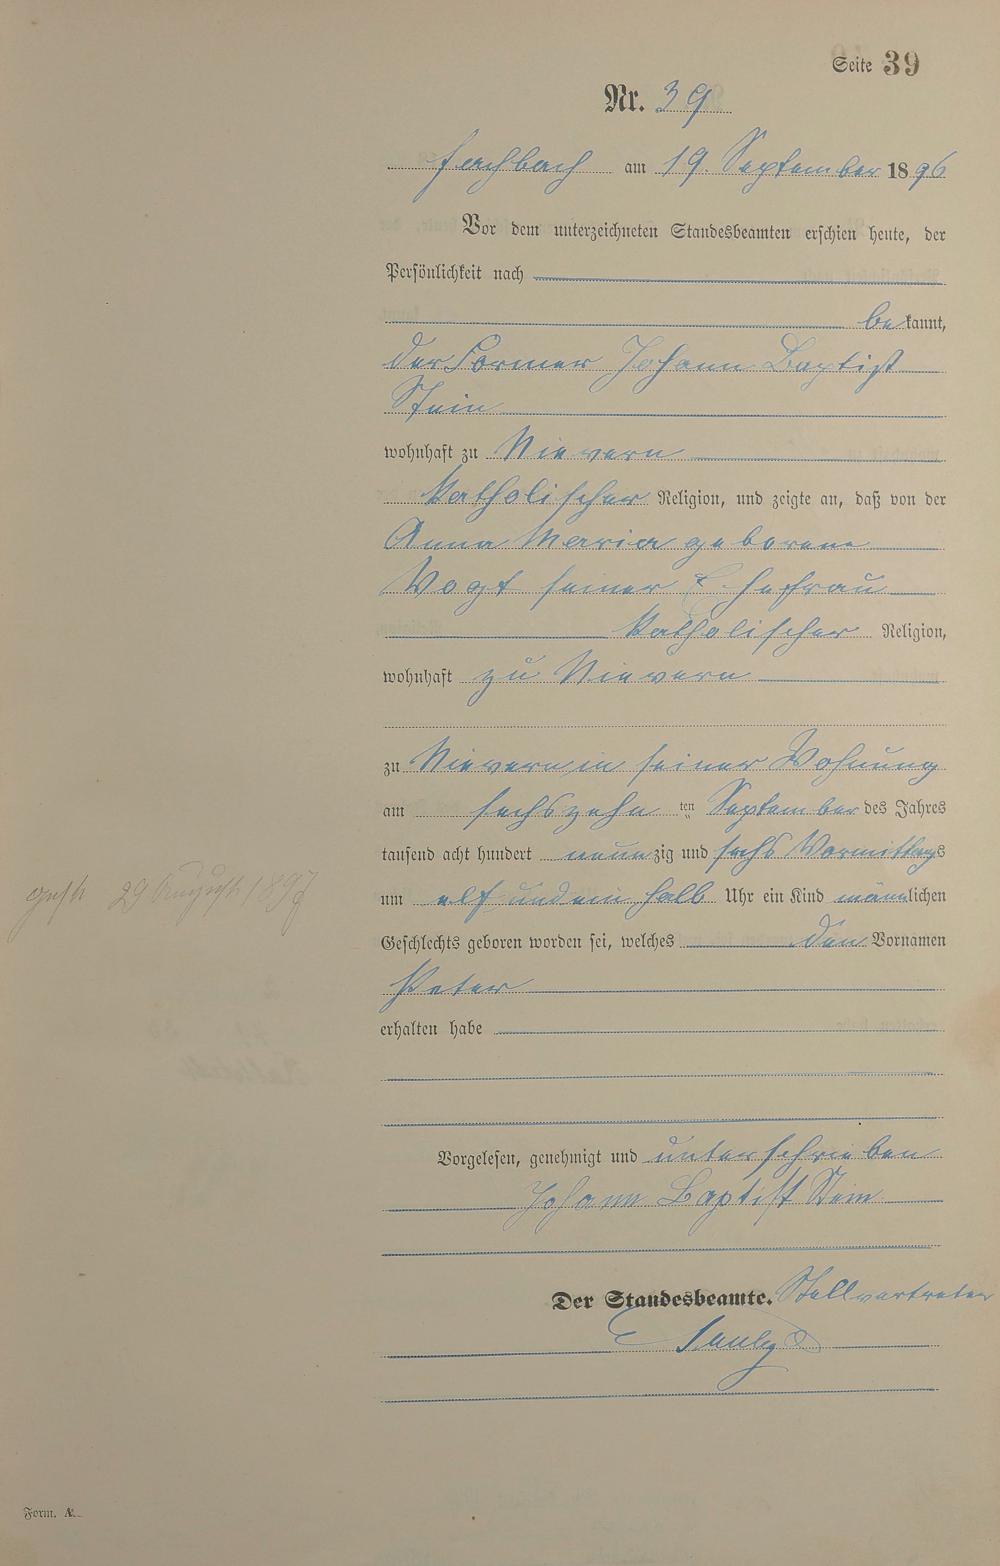 Seite 39
Nr. 39
Fachbach am 19. September 1896
Vor dem unterzeichneten Standesbeamten erschien heute, der
Persönlichkeit nach
bekannt,
der Former Johann Baptist
Stein
wohnhaft zu Nievern
katholischer Religion, und zeigte an, daß von der
Anna Maria geborene
Vogt seiner Ehefrau
katholischer Religion,
wohnhaft zu Nievern
zu Nievern in seiner Wohnung
am sechszehn ten September des Jahres
tausend acht hundert neunzig und sechs Vormittags
um elf und ein halb Uhr ein Kind männlichen
Geschlechts geboren worden sei, welches den Vornamen
Peter
erhalten habe
gest. 29 August 1897
Vorgelesen, genehmigt und unterschrieben
Johann Baptist Stein
Der Standesbeamte. Stellvertreter
Form. A.